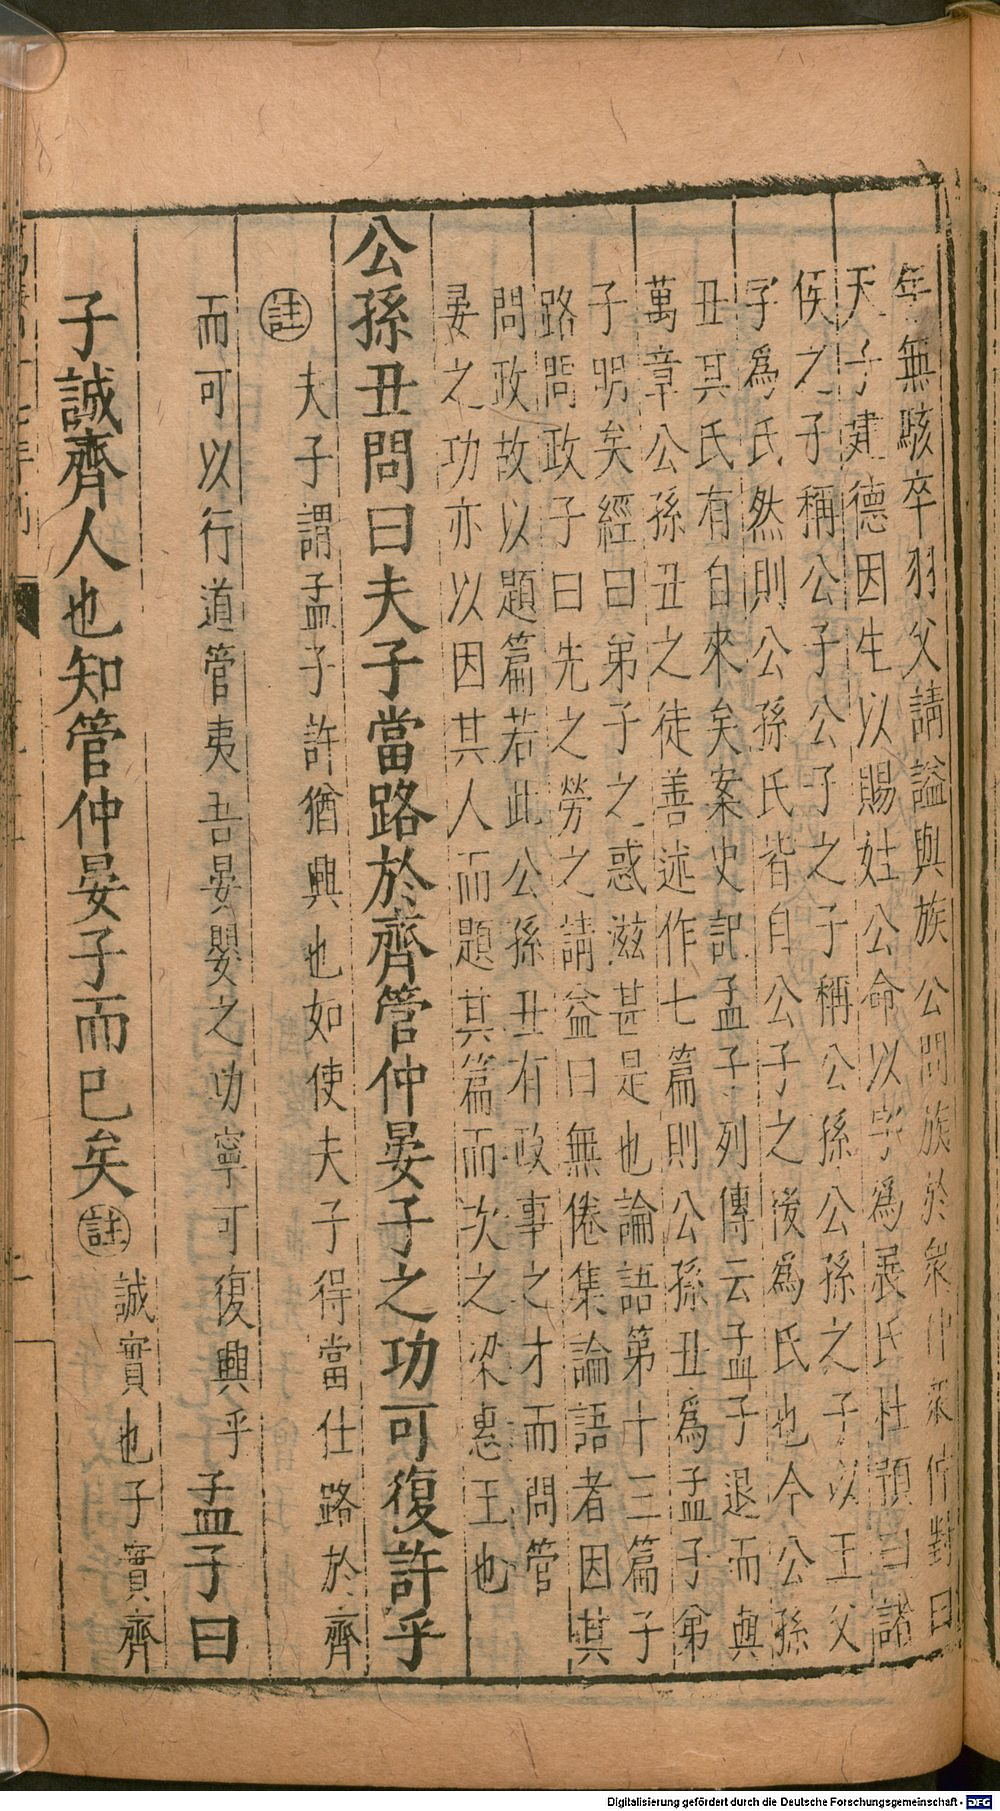 年無駭卒羽父請謚與族公問族於衆仲衆仲對曰
天子建德因生以賜姓公命以字爲展氏杜預曰諸
侯之子稱公子公子之子稱公孫公孫之子以王父
字爲氏然則公孫氏皆自公子之後爲氏也今公孫
丑其氏有自來矣案史記孟子列傳云孟子退而與
萬章公孫丑之徒善述作七篇則公孫丑爲孟子弟
子明矣經曰弟子之惑滋甚是也論語第十三篇子
路問政子曰先之勞之請益曰無倦集論語者因其
問政故以題篇若此公孫丑有政事之才而問管
晏之功亦以因其人而題其篇而次之梁惠王也
公孫丑問曰夫子當路於齊管仲晏子之功可復許乎
註夫子謂孟子許猶興也如使夫子得當仕路於齊
而可以行道管夷吾晏嬰之功寧可復興乎孟子曰
子誠齊人也知管仲晏子而已矣註誠實也子實齊
Digitalisierung gefördert durch die Deutsche Forschungsgemeinschaft - DFG